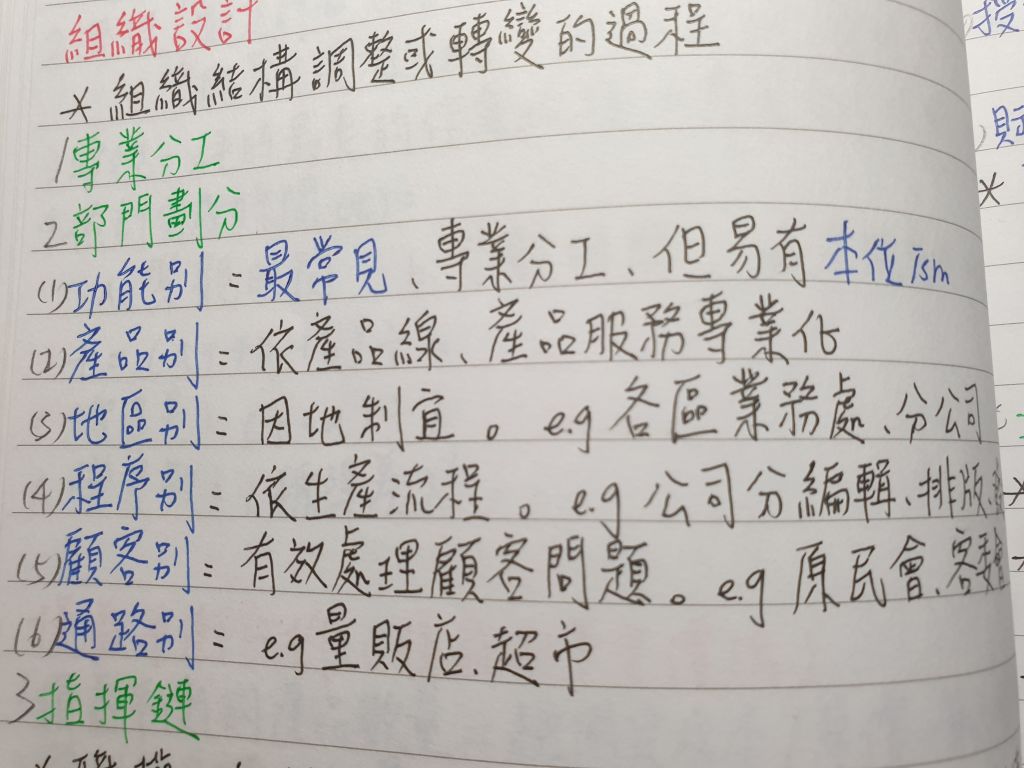 組織設計
* 組織結構調整或轉變的過程
1 專業分工
2 部門劃分
(1)功能別 = 最常見、專業分工、但易有本位ism
(2)產品別 = 依產品線、產品服務專業化
(3)地區別 = 因地制宜。e.g 各區業務處、分公司
(4)程序別 = 依生產流程。e.g 公司分編輯、排版、
(5)顧客別 = 有效處理顧客問題。e.g 原民會、客委會
(6)通路別 = e.g 量販店、超市
3 指揮鏈
* 職權
授
賦
*